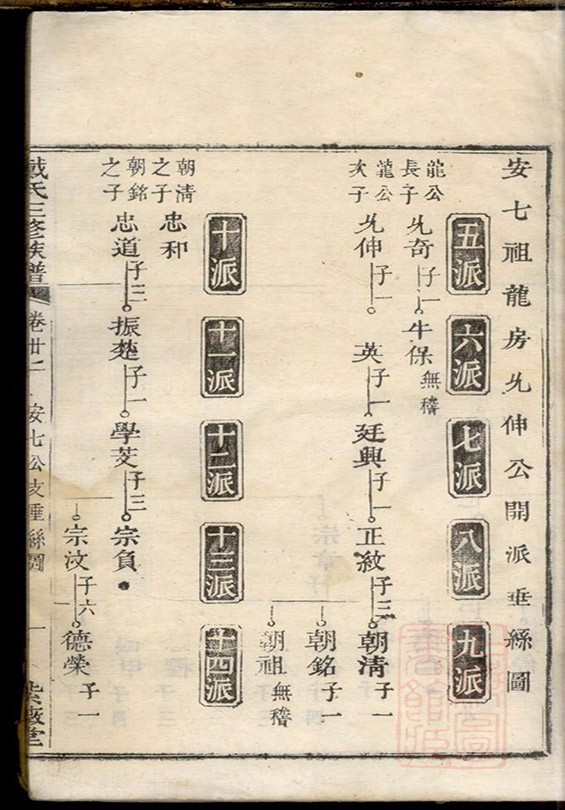 安七祖龍房允伸公開派垂絲圖
五派
六派
七派
八派
九派
龍公長子
允奇 子一
牛保 無稽
龍公次子
允伸 子一
英 子一
廷興 子一
正紋 子三
朝清 子一
朝銘 子一
朝祖 無稽
十派
十一派
十二派
十三派
十四派
朝清之子
忠和
朝銘之子
忠道 子三
振楚 子一
學芝 子三
宗負
宗汶 子六
德榮 子一
戴氏三修族譜
卷廿二
安七公支垂絲圖
一
紫薇堂